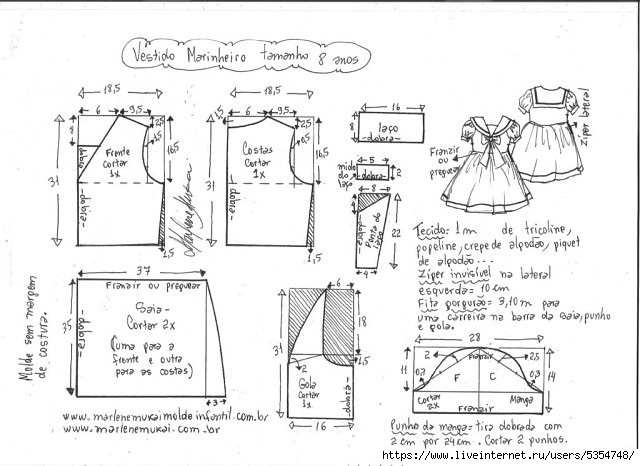 Vestido Marinheiro tamanho 8 anos
18,5
6
9,5
2,5
8
1,5
dobra
Frente
Cortar
1x
16,5
31
-dobra-
1,5
18,5
6
9,5
2,5
0,5
Costas
Cortar
1x
16,5
31
-dobra-
1,5
16
8
laço
-dobra-
5
miolo
do
laço
-dobra-
2
8
-dobra-
Ponta do
laço
22
4
Franzir
ou
preguear
Zíper lateral
Tecido= 1m de tricoline,
popeline, crepe de algodão, piquet
de algodão...
Zíper invisível na lateral
esquerda= 10cm
Fita gorgurão= 3,10m para
uma carreira na barra da saia, punho
e gola.
37
Franzir ou preguear
35
-dobra-
Saia-
Cortar 2x
(uma para a
frente e outra
para as costas)
3
Molde sem margem
de costura.
6
31
18
1,5
2
Gola
Cortar
1x
-dobra-
16
28
2
Franzir
2,5
11
0,7
F
C
0,3
14
Cortar
2x
Manga
Franzir
Punho da manga= tira dobrada com
2cm por 24cm. Cortar 2 punhos.
www.marlenemukaimoldeinfantil.com.br
www.marlenemukai.com.br
https://www.liveinternet.ru/users/5354748/